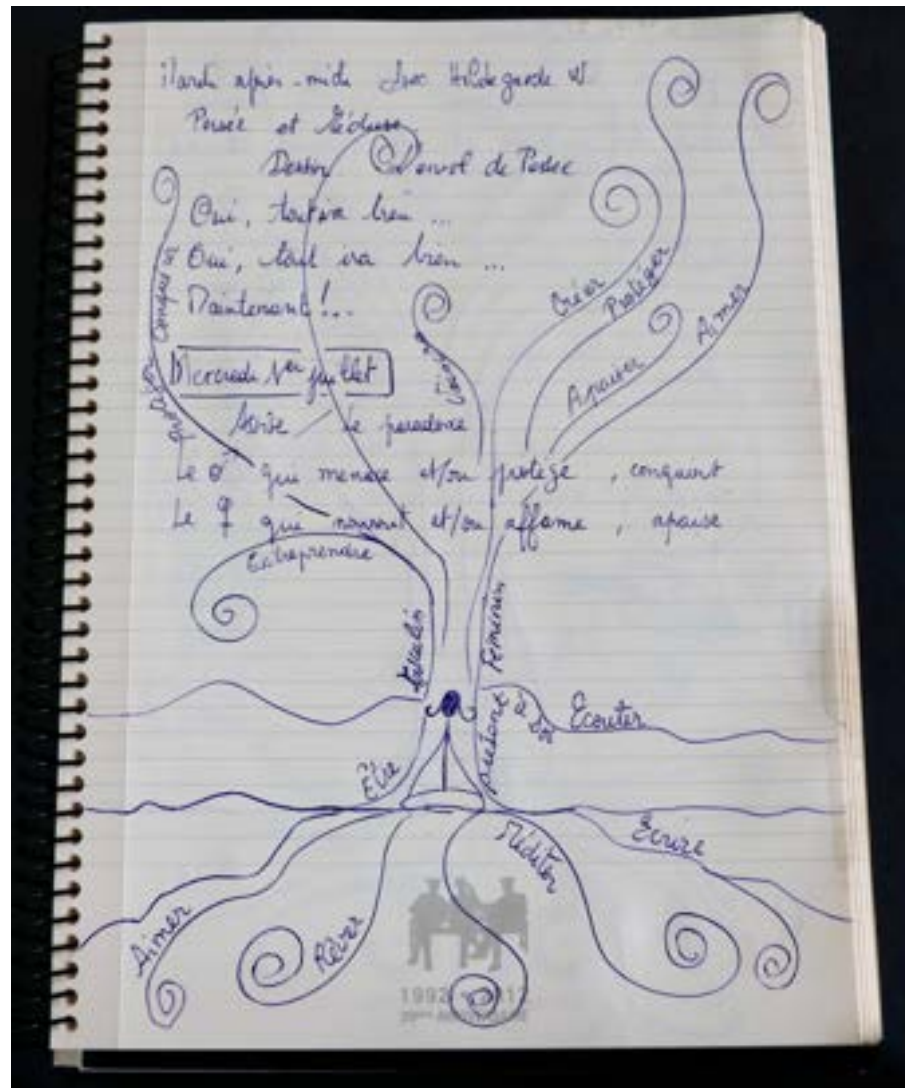 Mardi après-midi avec Hildegarde W.
Persée et Méduse
Dessin L'envol de Persée
Oui, tout ira bien ...
Oui, tout ira bien ...
Maintenant !...
Mercredi 1er juillet
le paradoxe
Le ♂ qui menace et/ou protège, conquiert
Le ♀ qui nourrit et/ou affame, apaise
Conquérir
Créer
Protéger
Apaiser
Aimer
Entreprendre
Masculin
Féminin
Être
Écouter
Aimer
Rêver
Méditer
Ecrire
1992 2017